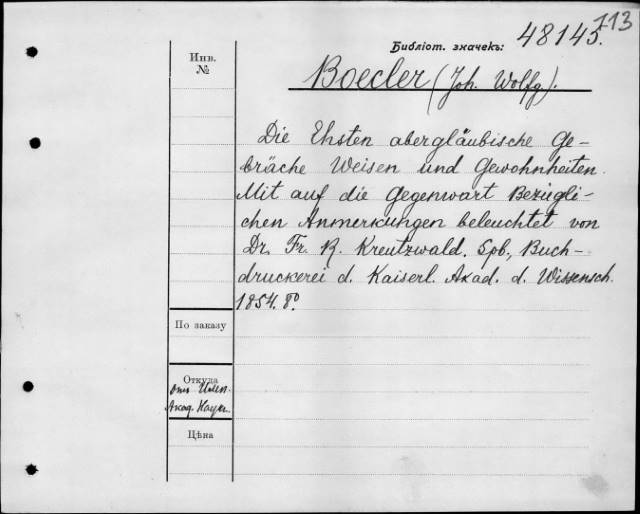 113
Библіот. значекъ: 48145.
Инв.
№
Boecler (Joh. Wolfg).
Die Ehsten abergläubische Ge-
bräche Weisen und Gewohnheiten.
Mit auf die Gegenwart Bezügli-
chen Anmerkungen beleuchtet von
Dr. Fr. R. Kreutzwald. Spb., Buch-
druckerei d. Kaiserl. Akad. d. Wissensch.
1854. 8º.
По заказу
Откуда
отъ
Акад. Наукъ
Цѣна